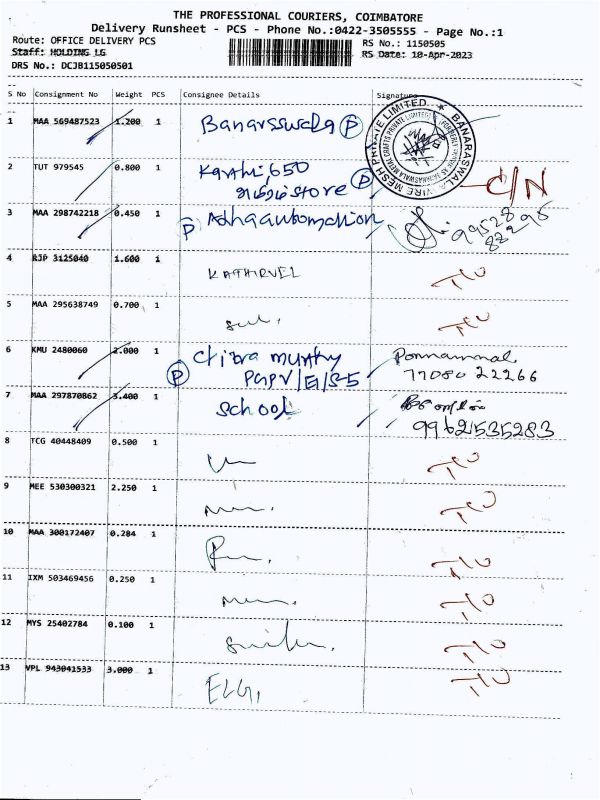 THE PROFESSIONAL COURIERS, COIMBATORE
Delivery Runsheet - PCS - Phone No.:0422-3505555 - Page No.:1
Route: OFFICE DELIVERY PCS
RS No.: 1150505
Staff: HOLDING LG
RS Date: 10-Apr-2023
DRS No.: DCJB115050501
S No Consignment No Weight PCS Consignee Details Signature
1 MAA 569487523 1.200 1 Banarsswala P
2 TUT 979545 0.800 1 Karthi, 650
store P C/N
3 MAA 298742218 0.450 1 P Adhaautomation 99528
88295
4 RJP 3125040 1.600 1 KATHIRVEL T/O
5 MAA 295638749 0.700 1 T/O
6 KMU 2480060 2.000 1 Chitra murthy Ponnammal
P PGPV/E/S5 77080 22266
7 MAA 297870862 3.400 1 School
99621535283
8 TCG 40448409 0.500 1 T/O
9 MEE 530300321 2.250 1 T/O
10 MAA 300172407 0.284 1 T/O
11 IXM 503469456 0.250 1 T/O
12 MYS 25402784 0.100 1 T/O
13 VPL 943041533 3.000 1 ELGI, T/O